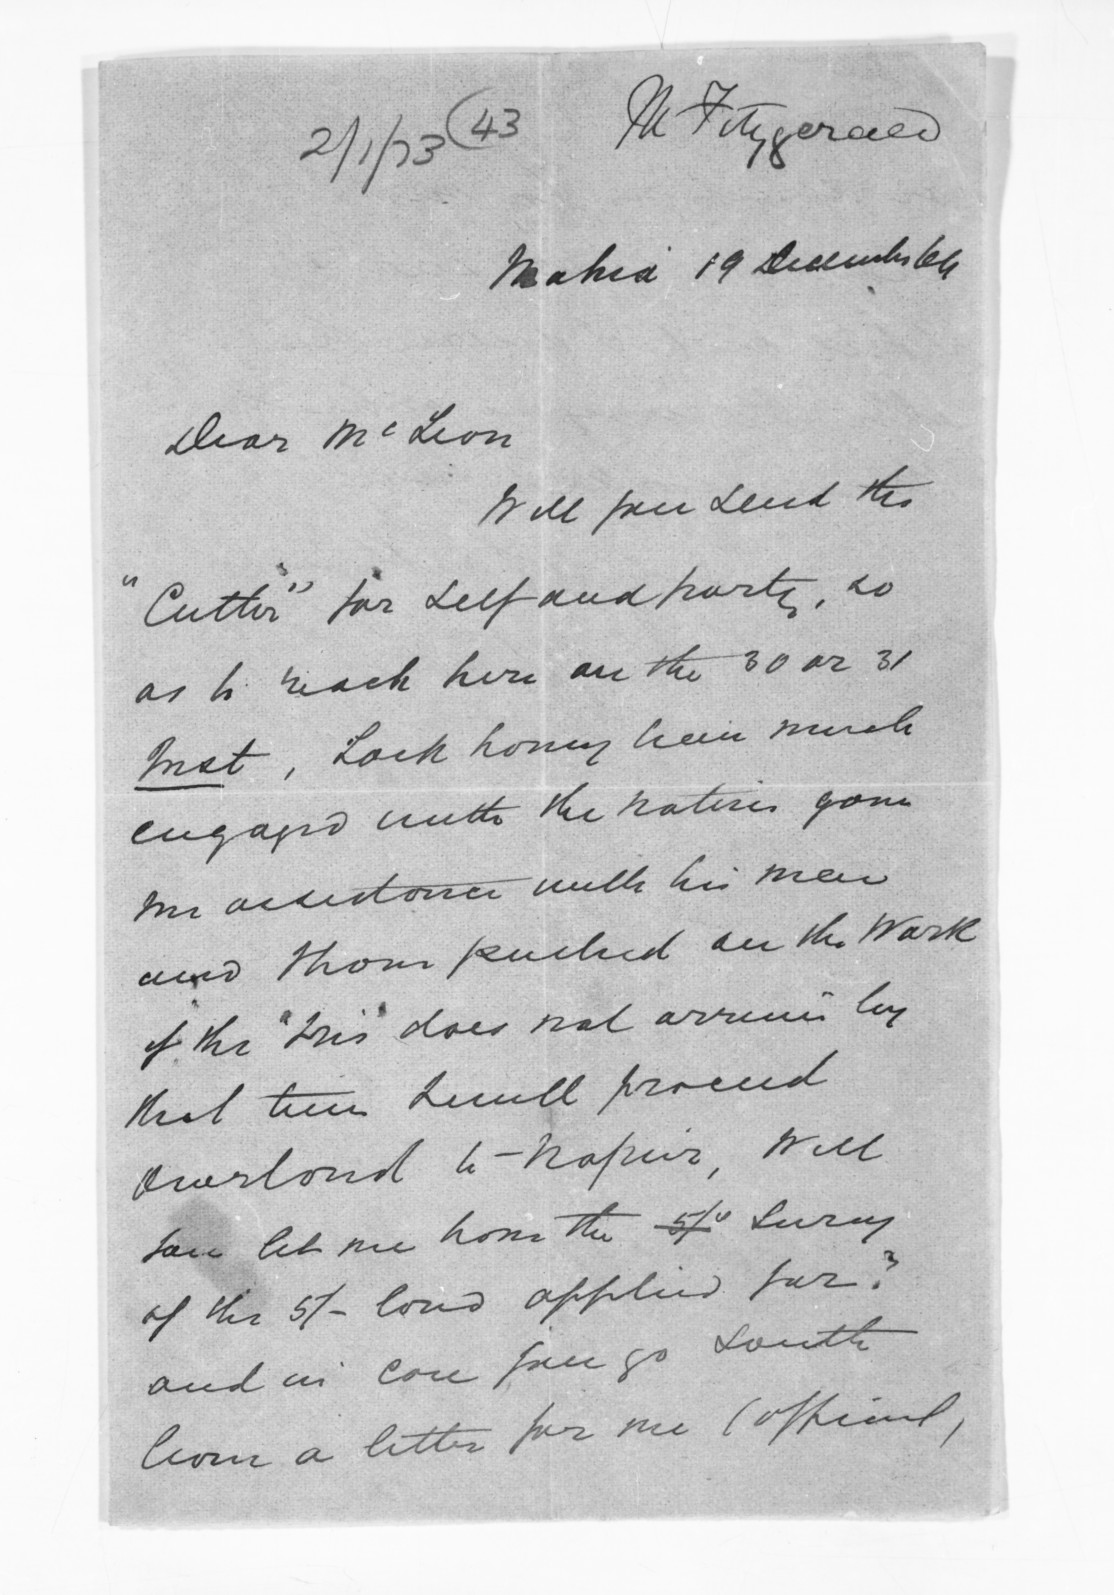 2/1/73 (43
M Fitzgerald
Mahia 19 December 64
Dear McLean
Will you send the
"Cutter" for self and party, so
as to reach here on the 30 or 31
Inst, Lock having been much
engaged with the natives gave
me assistance with his men
and I have pushed on the Work
if the "Iris" does not arrive by
that time I will proceed
Overland to Napier, Will
you let me have the 5/- Survey
of the 5/- land applied for?
and in case you go South
leave a letter for me (official,